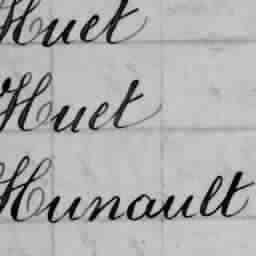 Huet
Huet
Hunault